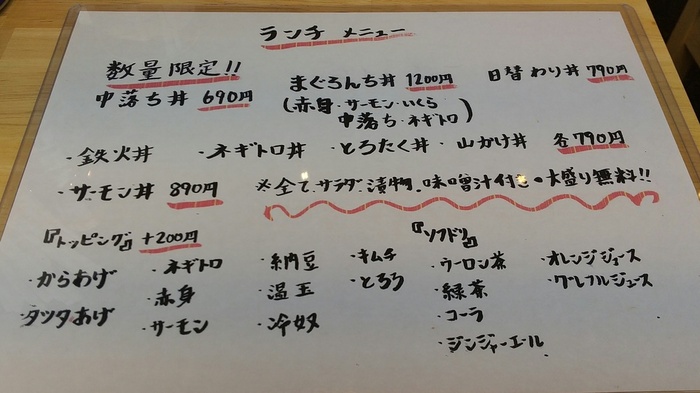 ランチ メニュー
数量限定!!
中落ち丼 690円
まぐろんち丼 1200円
(赤身・サーモン・いくら
中落ち・ネギトロ)
日替わり丼 790円
・鉄火丼 ・ネギトロ丼 ・とろたく丼・山かけ丼 各790円
・サーモン丼 890円
※全て、サラダ、漬物、味噌汁付き。大盛り無料!!
『トッピング』 +200円
・からあげ
・タツタあげ
・ネギトロ
・赤身
・サーモン
・納豆
・温玉
・冷奴
・キムチ
・とろろ
『ソフドリ』
・ウーロン茶
・緑茶
・コーラ
・ジンジャーエール
・オレンジジュース
・グレフルジュース